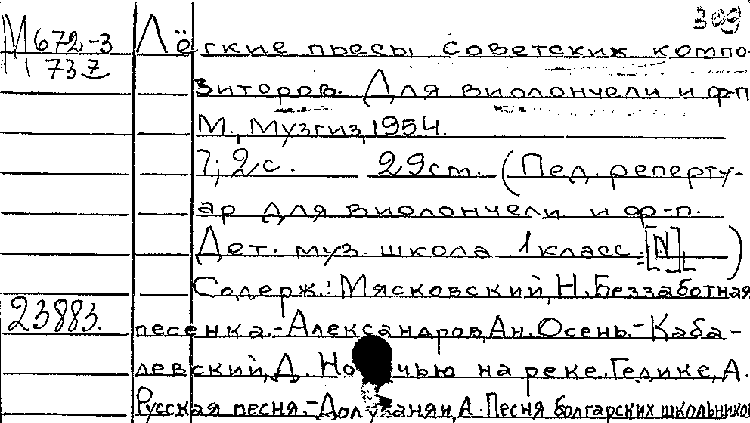 309
М 672-3 Лёгкие пьесы советских компо-
М 737 зиторов. Для виолончели и ф-п
М., Музгиз, 1954.
7; 2 с. 29 см. (Пед. реперту-
ар для виолончели и ф-п.
Дет. муз. школа 1 класс [N] )
Содерж.: Мясковский, Н. Беззаботная
23883. песенка.-Александров, Ан. Осень.-Каба-
левский, Д. Ночью на реке. Гедике, А.
Русская песня.-Долуханян, А. Песня болгарских школьников